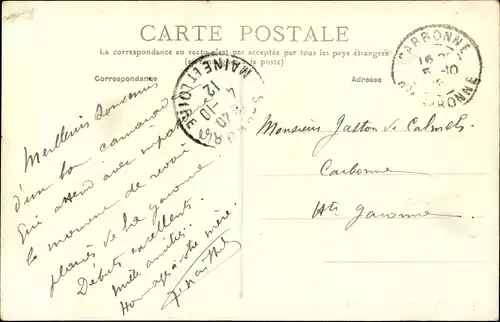 CARTE POSTALE
La correspondance au recto n'est pas acceptée par tous les pays étrangers
Correspondance
Adresse
MAINE ET LOIRE
CARBONNE
Meilleurs Souvenirs
d'un bon camarade
Qui attend avec impatience
le moment de revoir
de la Garonne
Débuts excellents
Mille amitiés
Homages à votre mère.
Monsieur Gaston de Calmels
Carbonne
Hte Garonne